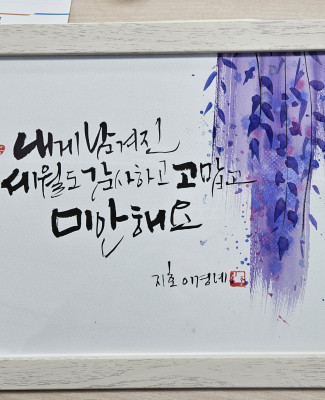 내게 남겨진
세월도 감사하고 고맙고
미안해요
지호 이경례